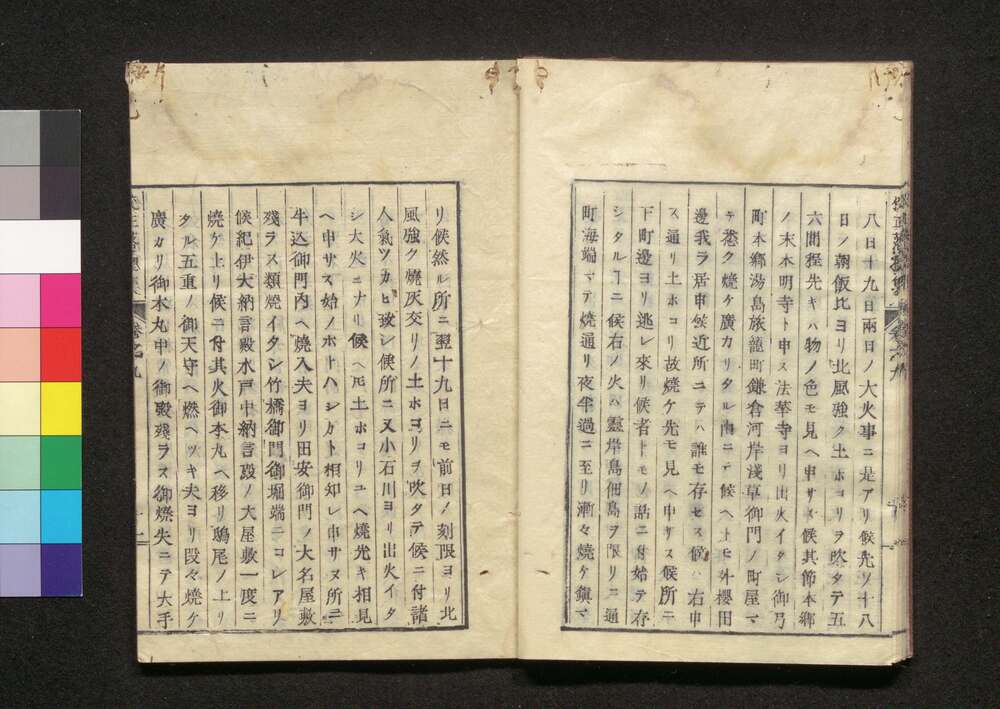 八日十九日兩日ノ大火事ニ是アリ候先ソ十八
日ノ朝飯比ヨリ北風強ク土ホコリヲ吹タテ五
六間程先キハ物ノ色モ見ヘ申サス候其節本郷
ノ末本明寺ト申ス法華寺ヨリ出火イタシ御弓
町本郷湯島旅籠町鎌倉河岸淺草御門ノ町屋マ
テ悉ク燒ケ廣カリタル由ニテ候ヘトモ外櫻田
邊我ラ居申候近所ニテハ誰モ存セス候ハ右申
ス通リ土ホコリ故燒ケ先モ見ヘ申サス候所ニ
下町邊ヨリ逃レ來リ候者トモノ話ニ付始テ存
シタルヿニ候右ノ火ハ靈岸島佃島ヲ限リニ通
町海端マテ燒通リ夜半過ニ至リ漸々燒ケ鎭マ
リ候然ル所ニ翌十九日ニモ前日ノ刻限ヨリ北
風強ク燒灰交リノ土ホコリヲ吹タテ候ニ付諸
人氣ツカヒ致シ候所ニ又小石川ヨリ出火イタ
シ大火ニナリ候ヘ𪜈土ホコリユヘ燒先キ相見
ヘ申サス始ノホトハシカト相知レ申サヌ所ニ
牛込御門内ヘ燒入夫ヨリ田安御門ノ大名屋敷
殘ラス類燒イタシ竹橋御門御堀端ニコレアリ
候紀伊大納言殿水戸中納言殿ノ大屋敷一度ニ
燒ケ上リ候ニ付其火御本丸ヘ移リ鴟尾ノ上リ
タル五重ノ御天守ヘ燃ヘツキ夫ヨリ段々燒ケ
廣カリ御本丸中ノ御殿殘ラス御燒失ニテ大手